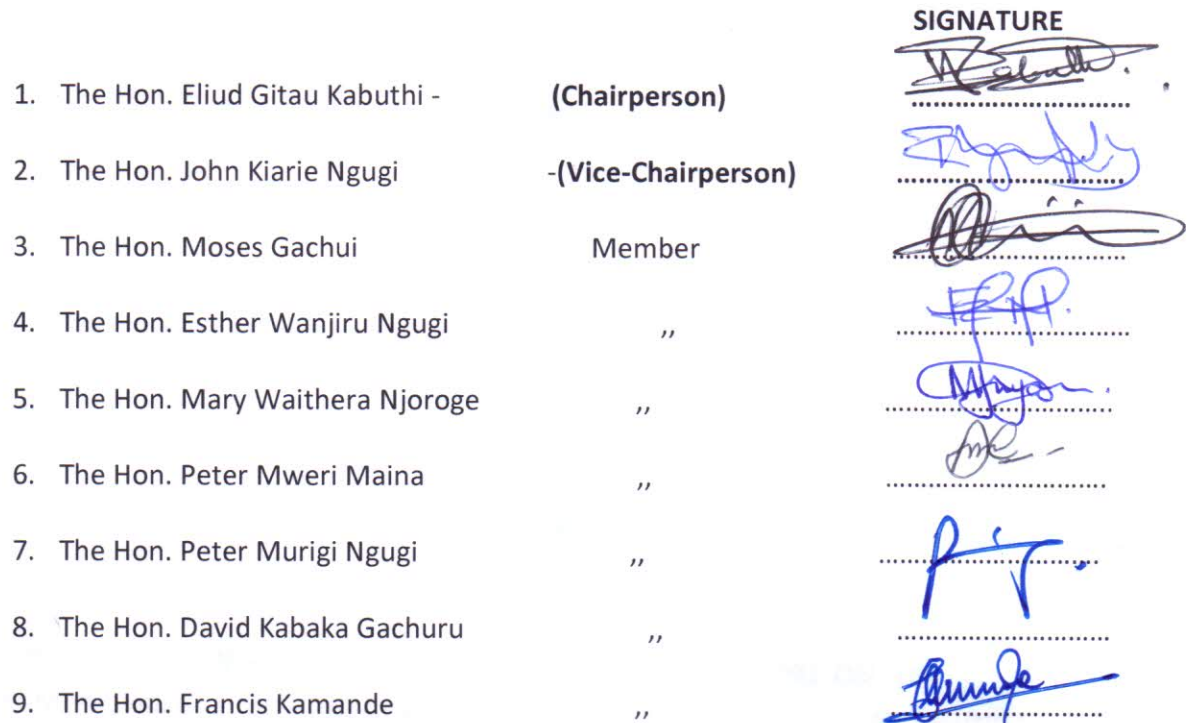 SIGNATURE
1. The Hon. Eliud Gitau Kabuthi - (Chairperson)
2. The Hon. John Kiarie Ngugi -(Vice-Chairperson)
3. The Hon. Moses Gachui Member
4. The Hon. Esther Wanjiru Ngugi ,,
5. The Hon. Mary Waithera Njoroge ,,
6. The Hon. Peter Mweri Maina ,,
7. The Hon. Peter Murigi Ngugi ,,
8. The Hon. David Kabaka Gachuru ,,
9. The Hon. Francis Kamande ,,